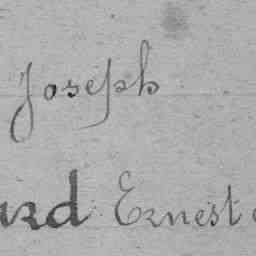 Joseph
Ernest